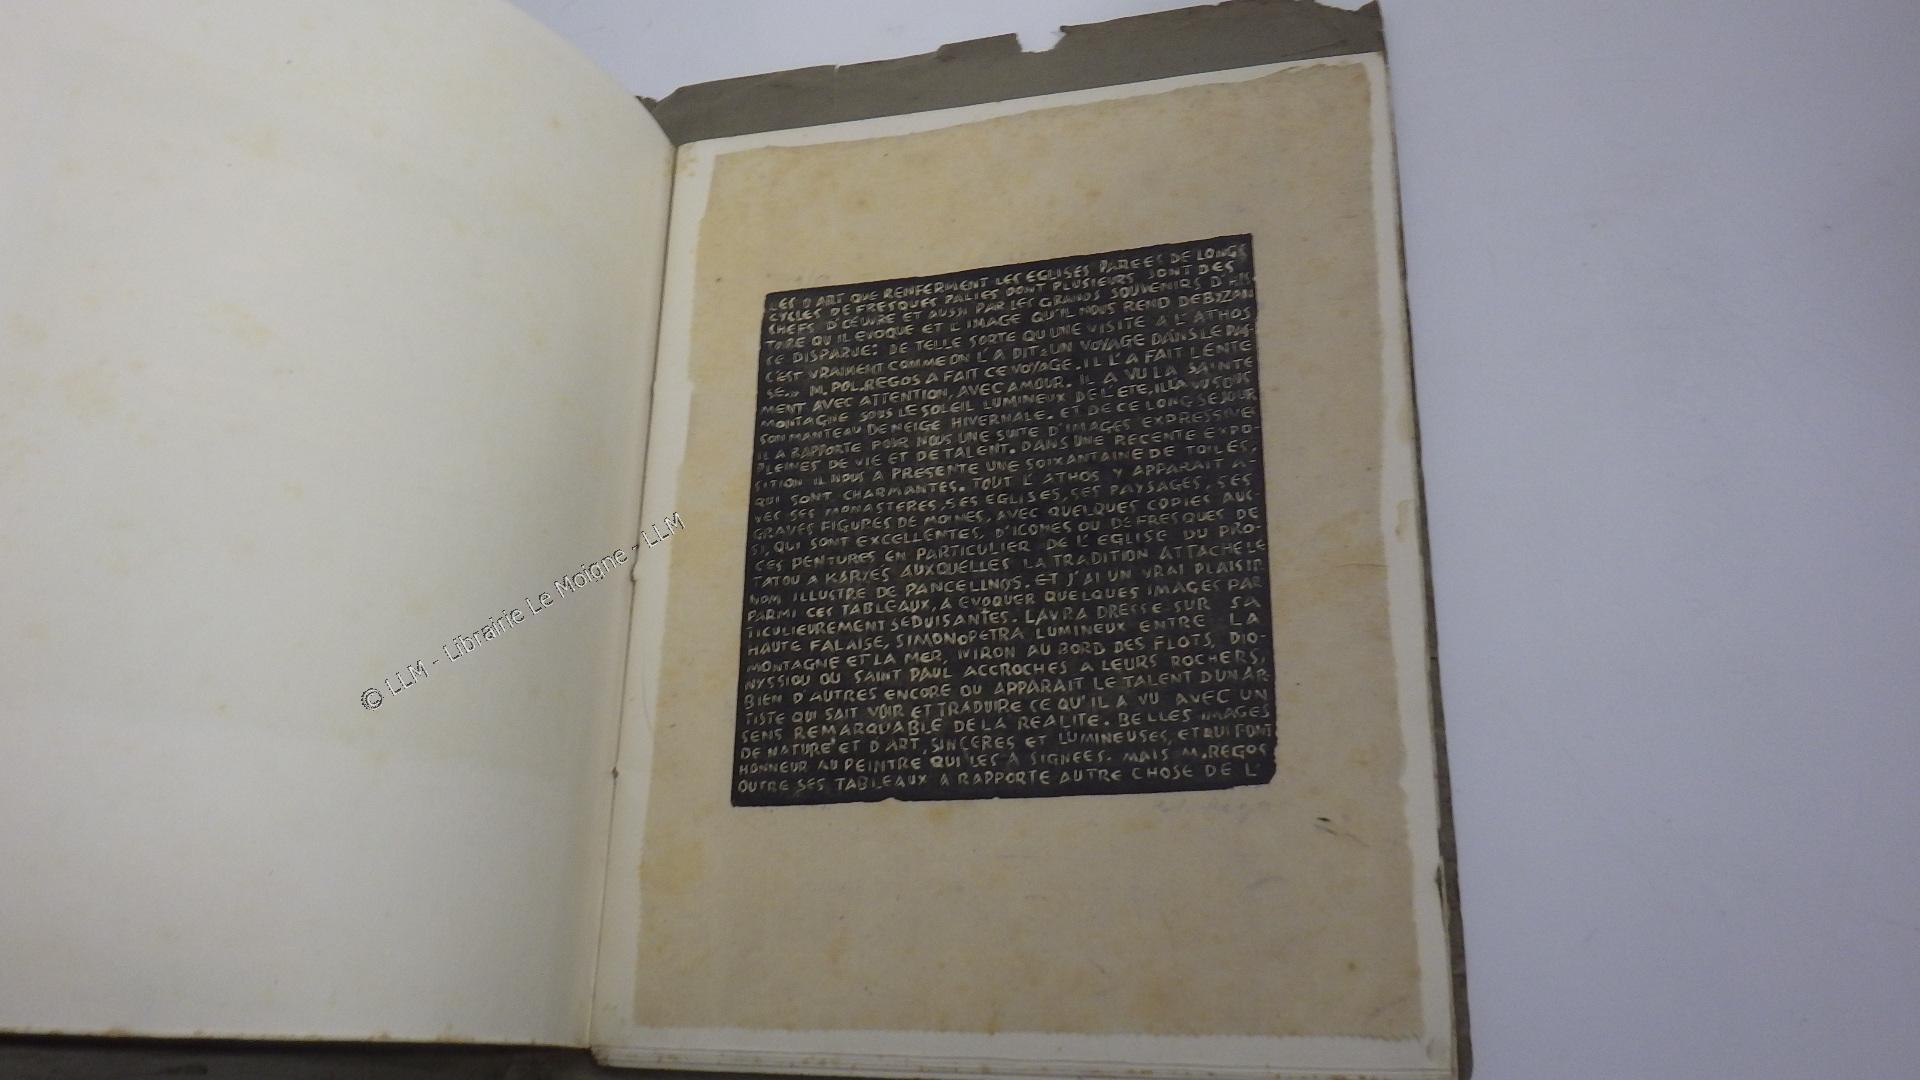 LES D'ART QUE RENFERMENT LES EGLISES PAREES DE LONGS
CYCLES DE FRESQUES PALIES DONT PLUSIEURS SONT DES
CHEFS D'ŒUVRE ET AUSSI PAR LES GRANDS SOUVENIRS D'HIS
TOIRE QU'IL EVOQUE ET L'IMAGE QU'IL NOUS REND DE BYZAN
CE DISPARUE: DE TELLE SORTE QU'UNE VISITE A L'ATHOS
C'EST VRAIMENT COMME ON L'A DIT: UN VOYAGE DANS LE PAS-
SE.» M. POL.REGOS A FAIT CE VOYAGE. IL L'A FAIT LENTE
MENT AVEC ATTENTION, AVEC AMOUR. IL A VU LA SAINTE
MONTAGNE SOUS LE SOLEIL LUMINEUX DE L'ETE, IL L'A VU SOUS
SON MANTEAU DE NEIGE HIVERNALE. ET DE CE LONG SEJOUR
IL A RAPPORTE POUR NOUS UNE SUITE D'IMAGES EXPRESSIVES
PLEINES DE VIE ET DE TALENT. DANS UNE RECENTE EXPO-
SITION IL NOUS A PRESENTE UNE SOIXANTAINE DE TOILES,
QUI SONT CHARMANTES. TOUT L'ATHOS Y APPARAIT A-
VEC SES MONASTERES, SES EGLISES, SES PAYSAGES, SES
GRAVES FIGURES DE MOINES, AVEC QUELQUES COPIES AUS-
SI, QUI SONT EXCELLENTES, D'ICONES OU DE FRESQUES DE
CES PEINTURES EN PARTICULIER DE L'EGLISE DU PRO-
TATOU A KARYES AUXQUELLES LA TRADITION ATTACHE LE
NOM ILLUSTRE DE PANCELLNOS. ET J'AI UN VRAI PLAISIR
PARMI CES TABLEAUX, A EVOQUER QUELQUES IMAGES PAR
TICULIEUREMENT SEDUISANTES. LAVRA DRESSE SUR SA
HAUTE FALAISE, SIMONOPETRA LUMINEUX ENTRE LA
MONTAGNE ET LA MER, IVIRON AU BORD DES FLOTS, DIO-
NYSSIOU OU SAINT PAUL ACCROCHES A LEURS ROCHERS,
BIEN D'AUTRES ENCORE OU APPARAIT LE TALENT D'UN AR-
TISTE QUI SAIT VOIR ET TRADUIRE CE QU'IL A VU AVEC UN
SENS REMARQUABLE DE LA REALITE. BELLES IMAGES
DE NATURE ET D'ART, SINCERES ET LUMINEUSES, ET QUI FONT
HONNEUR AU PEINTRE QUI LES A SIGNEES. MAIS M.REGOS
OUTRE SES TABLEAUX A RAPPORTE AUTRE CHOSE DE L'
© LLM - Librairie Le Moigne - LLM